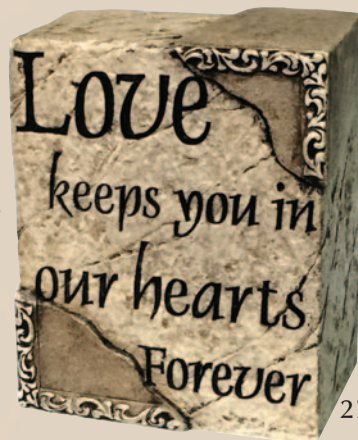 Love
keeps you in
our hearts
Forever